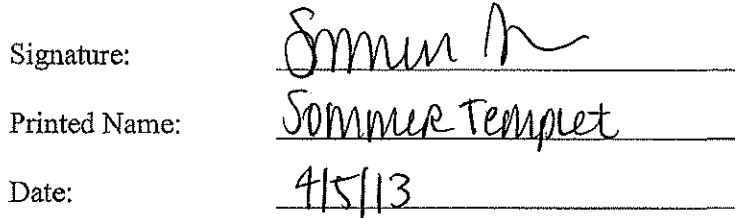 Signature: Sommer T
Printed Name: Sommer Templet
Date: 4/5/13